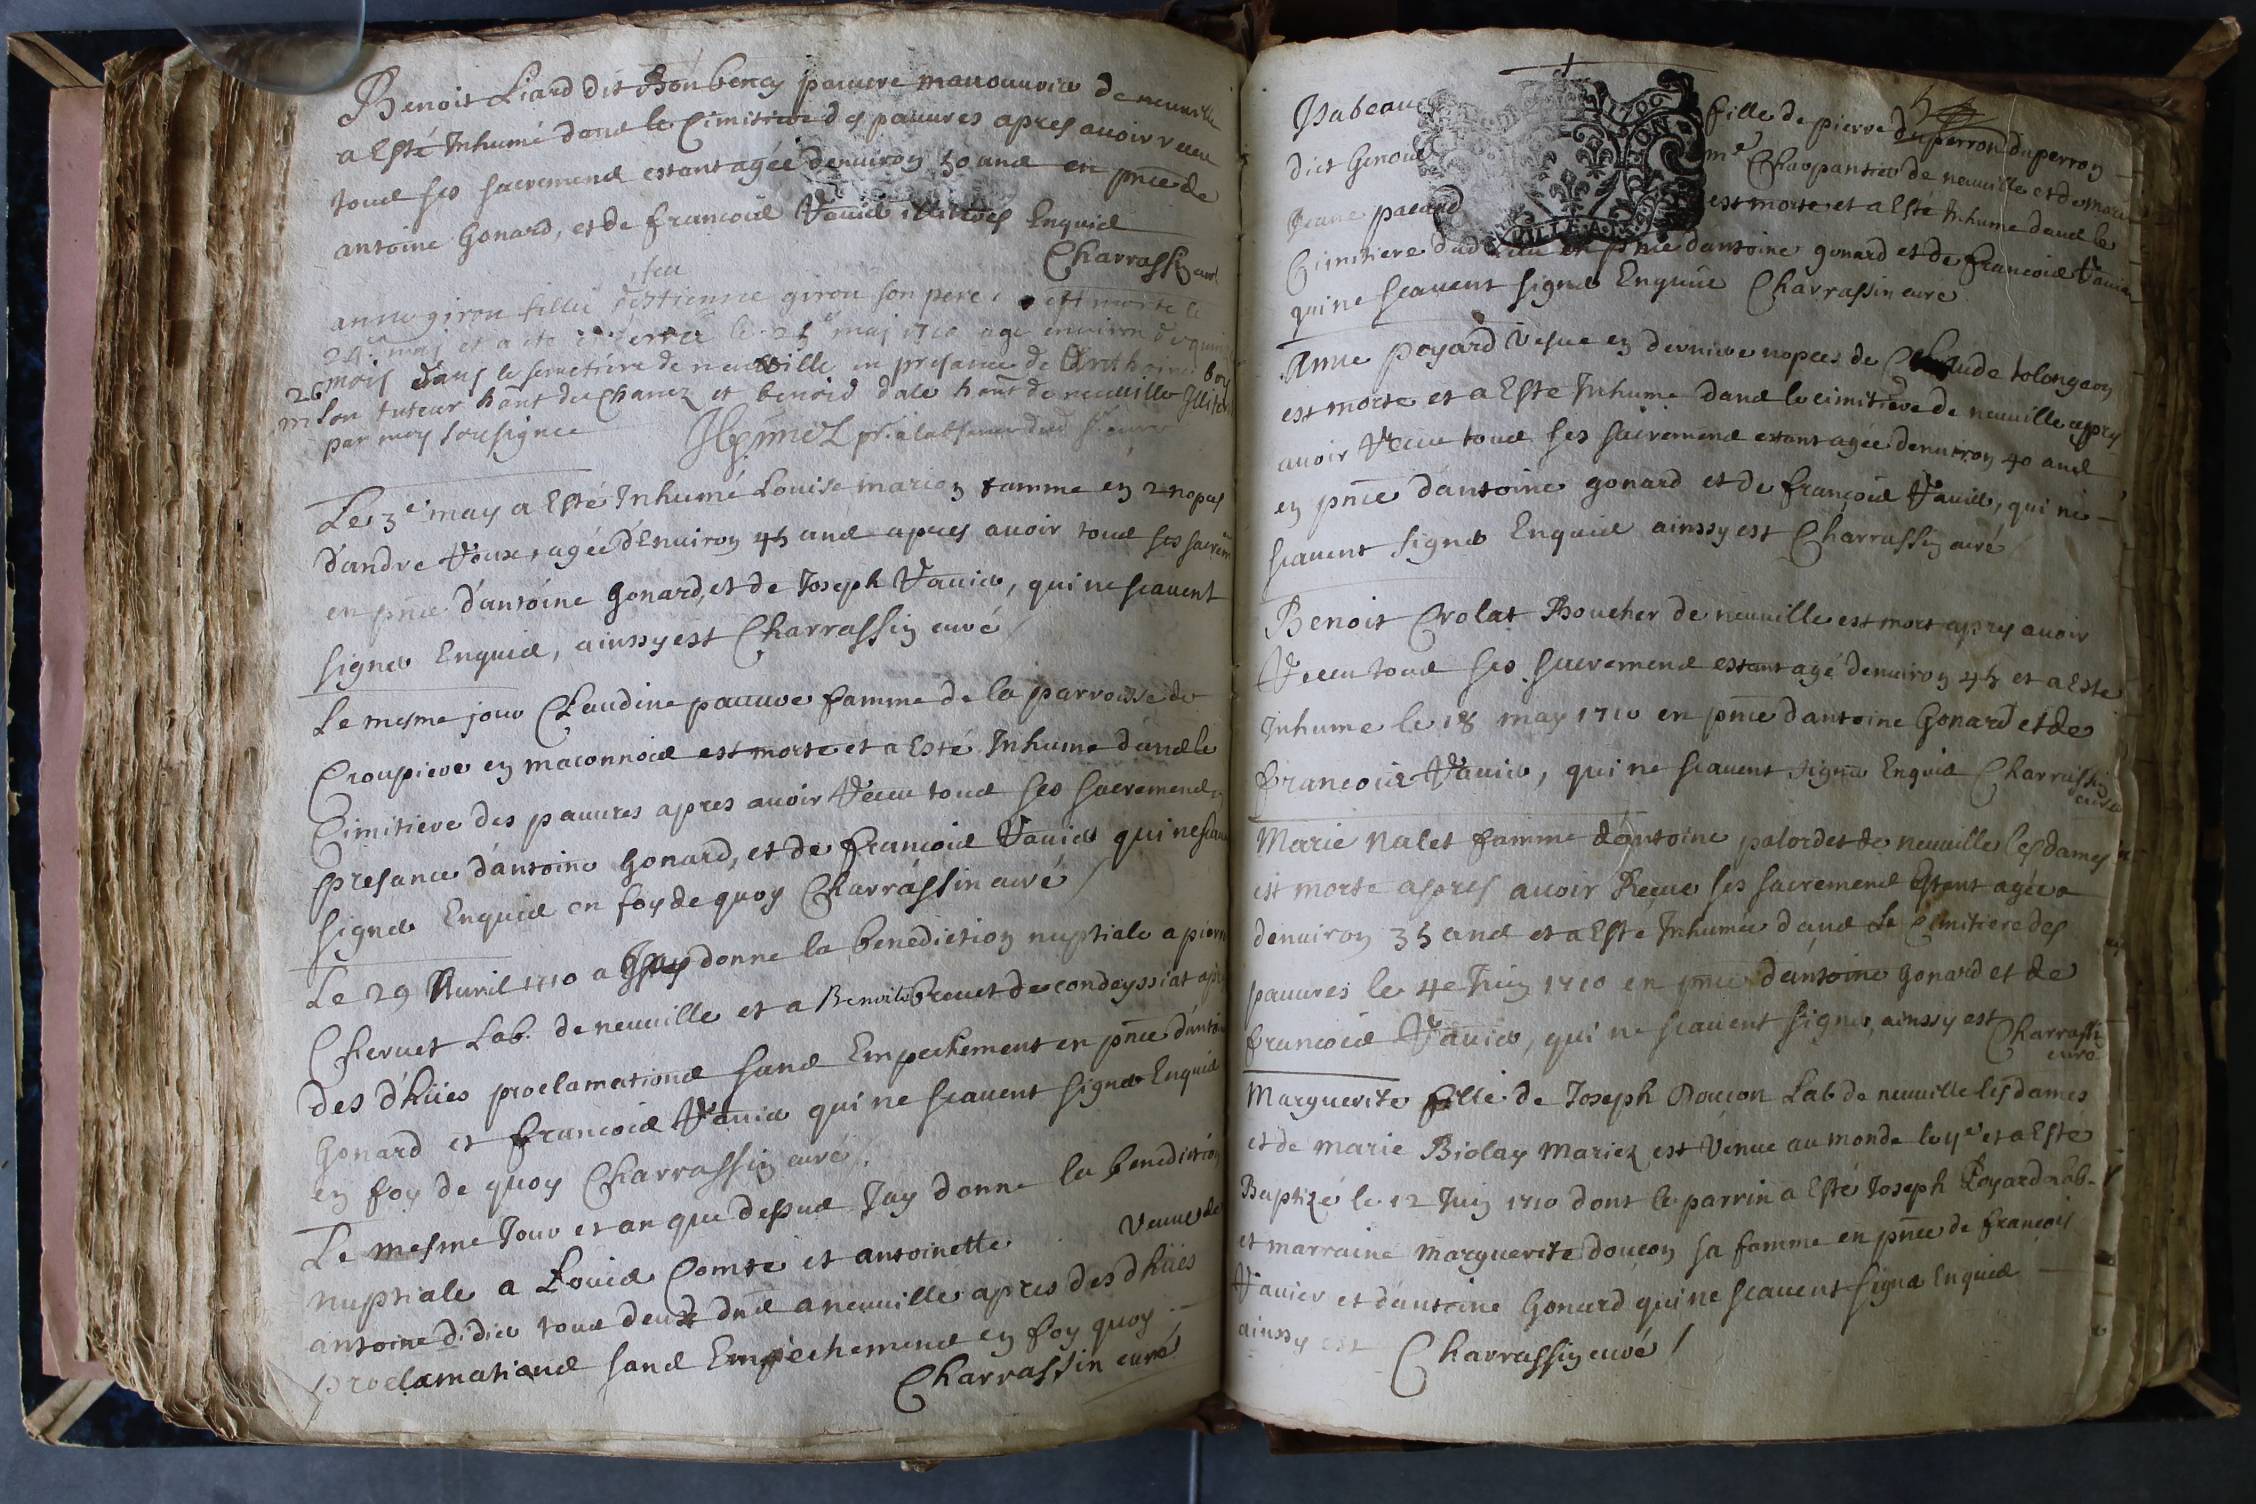 Benoit Liard dit Bonbency pauure manouurier de neuuille
a Esté Inhumé dans le Cimitiere des pauures apres auoir receu
tous ses sacremens estant agée denuiron 50 ans en pnce de
antoine Gonard, et de francois Vauier illitres Enquis
Charrassin curé
feu
anne giron fillie destienne giron son pere est morte le
24e maj et a ete enterrée le 25e maj 1710 age enuiron de quinze
mois dans le semetiere de neuville en presance de Anthoine boy
26
m son tuteur hant de Chanez et benoid dale hant de neuuille Illiteres
par moy sousignee pr. a labsence dud sr. cure
Le 3e may a Esté Inhumé Louise marion famme en 2 nopces
d'andre Voux, agée d'Enuiron 45 ans apres auoir tous ses sacrem
en pnce d'antoine Gonard, et de Joseph Vauier, qui ne scauent
signer Enquis, ainssy est Charrassin curé
Le mesme jour Claudine pauure famme de la parroisse de
Croupiere en maconnois est morte et a Esté Inhume dans le
Cimitiere des pauures apres auoir Receu tous ses sacremens
presance d'antoine Gonard, et de francois Vauier qui ne scau
signer Enquis en foy de quoy Charrassin curé
Le 29 Auril 1710 a Jay donne la benediction nuptiale a pierre
Cheruet Lab. de neuuille et a Benoite Brouet de condeyssiat apres
des d'hües proclamations sans Empechement en pnce d'antoi
Gonard et francois Vauier qui ne scauent signer Enquis
en foy de quoy Charrassin curé
Le mesme Jour et an que dessus Jay donne la benediction
nuptiale a Louis Comte et antoinette Veuue de
antoine didier tous deux dud a neuuille apres des d'hües
proclamations sans Empechemens en foy quoy
Charrassin curé
Isabeau fille de pierre duperron duperron
dict Genoud me Charpantier de neuuille et de marie
Jeane pacard est morte et a Esté Inhume dans le
Cimitiere dud Lieu en pnce dantoine gonard et de francois Vauier
qui ne scauent signer Enquis Charrassin curé
Anne poyard Vesue en derniere nopces de Claude tolongeon
est morte et a Esté Inhume dans le cimitiere de neuuille apres
auoir Receu tous ses sacremens estant agée denuiron 40 ans
en pnce d'antoine gonard et de françois Vauier, qui ne
scauent signer Enquis ainssy est Charrassin curé
Benoit Crolat Boucher de neuuille est mort apres auoir
Receu tous ses sacremens estant agé denuiron 45 et a Esté
Inhume le 18 may 1710 en pnce dantoine Gonard et de
francois Vauier, qui ne scauent signer Enquis Charrassin
curé
Marie Nalet famme d'antoine palordet de neuuille les dames
est morte apres auoir Receue ses sacremens Estant agée
denuiron 35 ans et a Esté Inhumée dans Le Cimitiere des
pauures le 4e Juin 1710 en pnce d'antoine Gonard et de
francois Vauier, qui ne scauent signer, ainssy est Charrassin
curé
Marguerite fille de Joseph Doucon Lab de neuuille les dames
et de marie Biolay Mariez est Venue au monde le 11e et a Esté
Baptizé le 12 Juin 1710 dont le parrin a Esté Joseph Poyard lab.
et marraine marguerite doucon sa famme en pnce de francois
Vauier et d'antoine Gonard qui ne scauent signer Enquis
ainssy est Charrassin curé